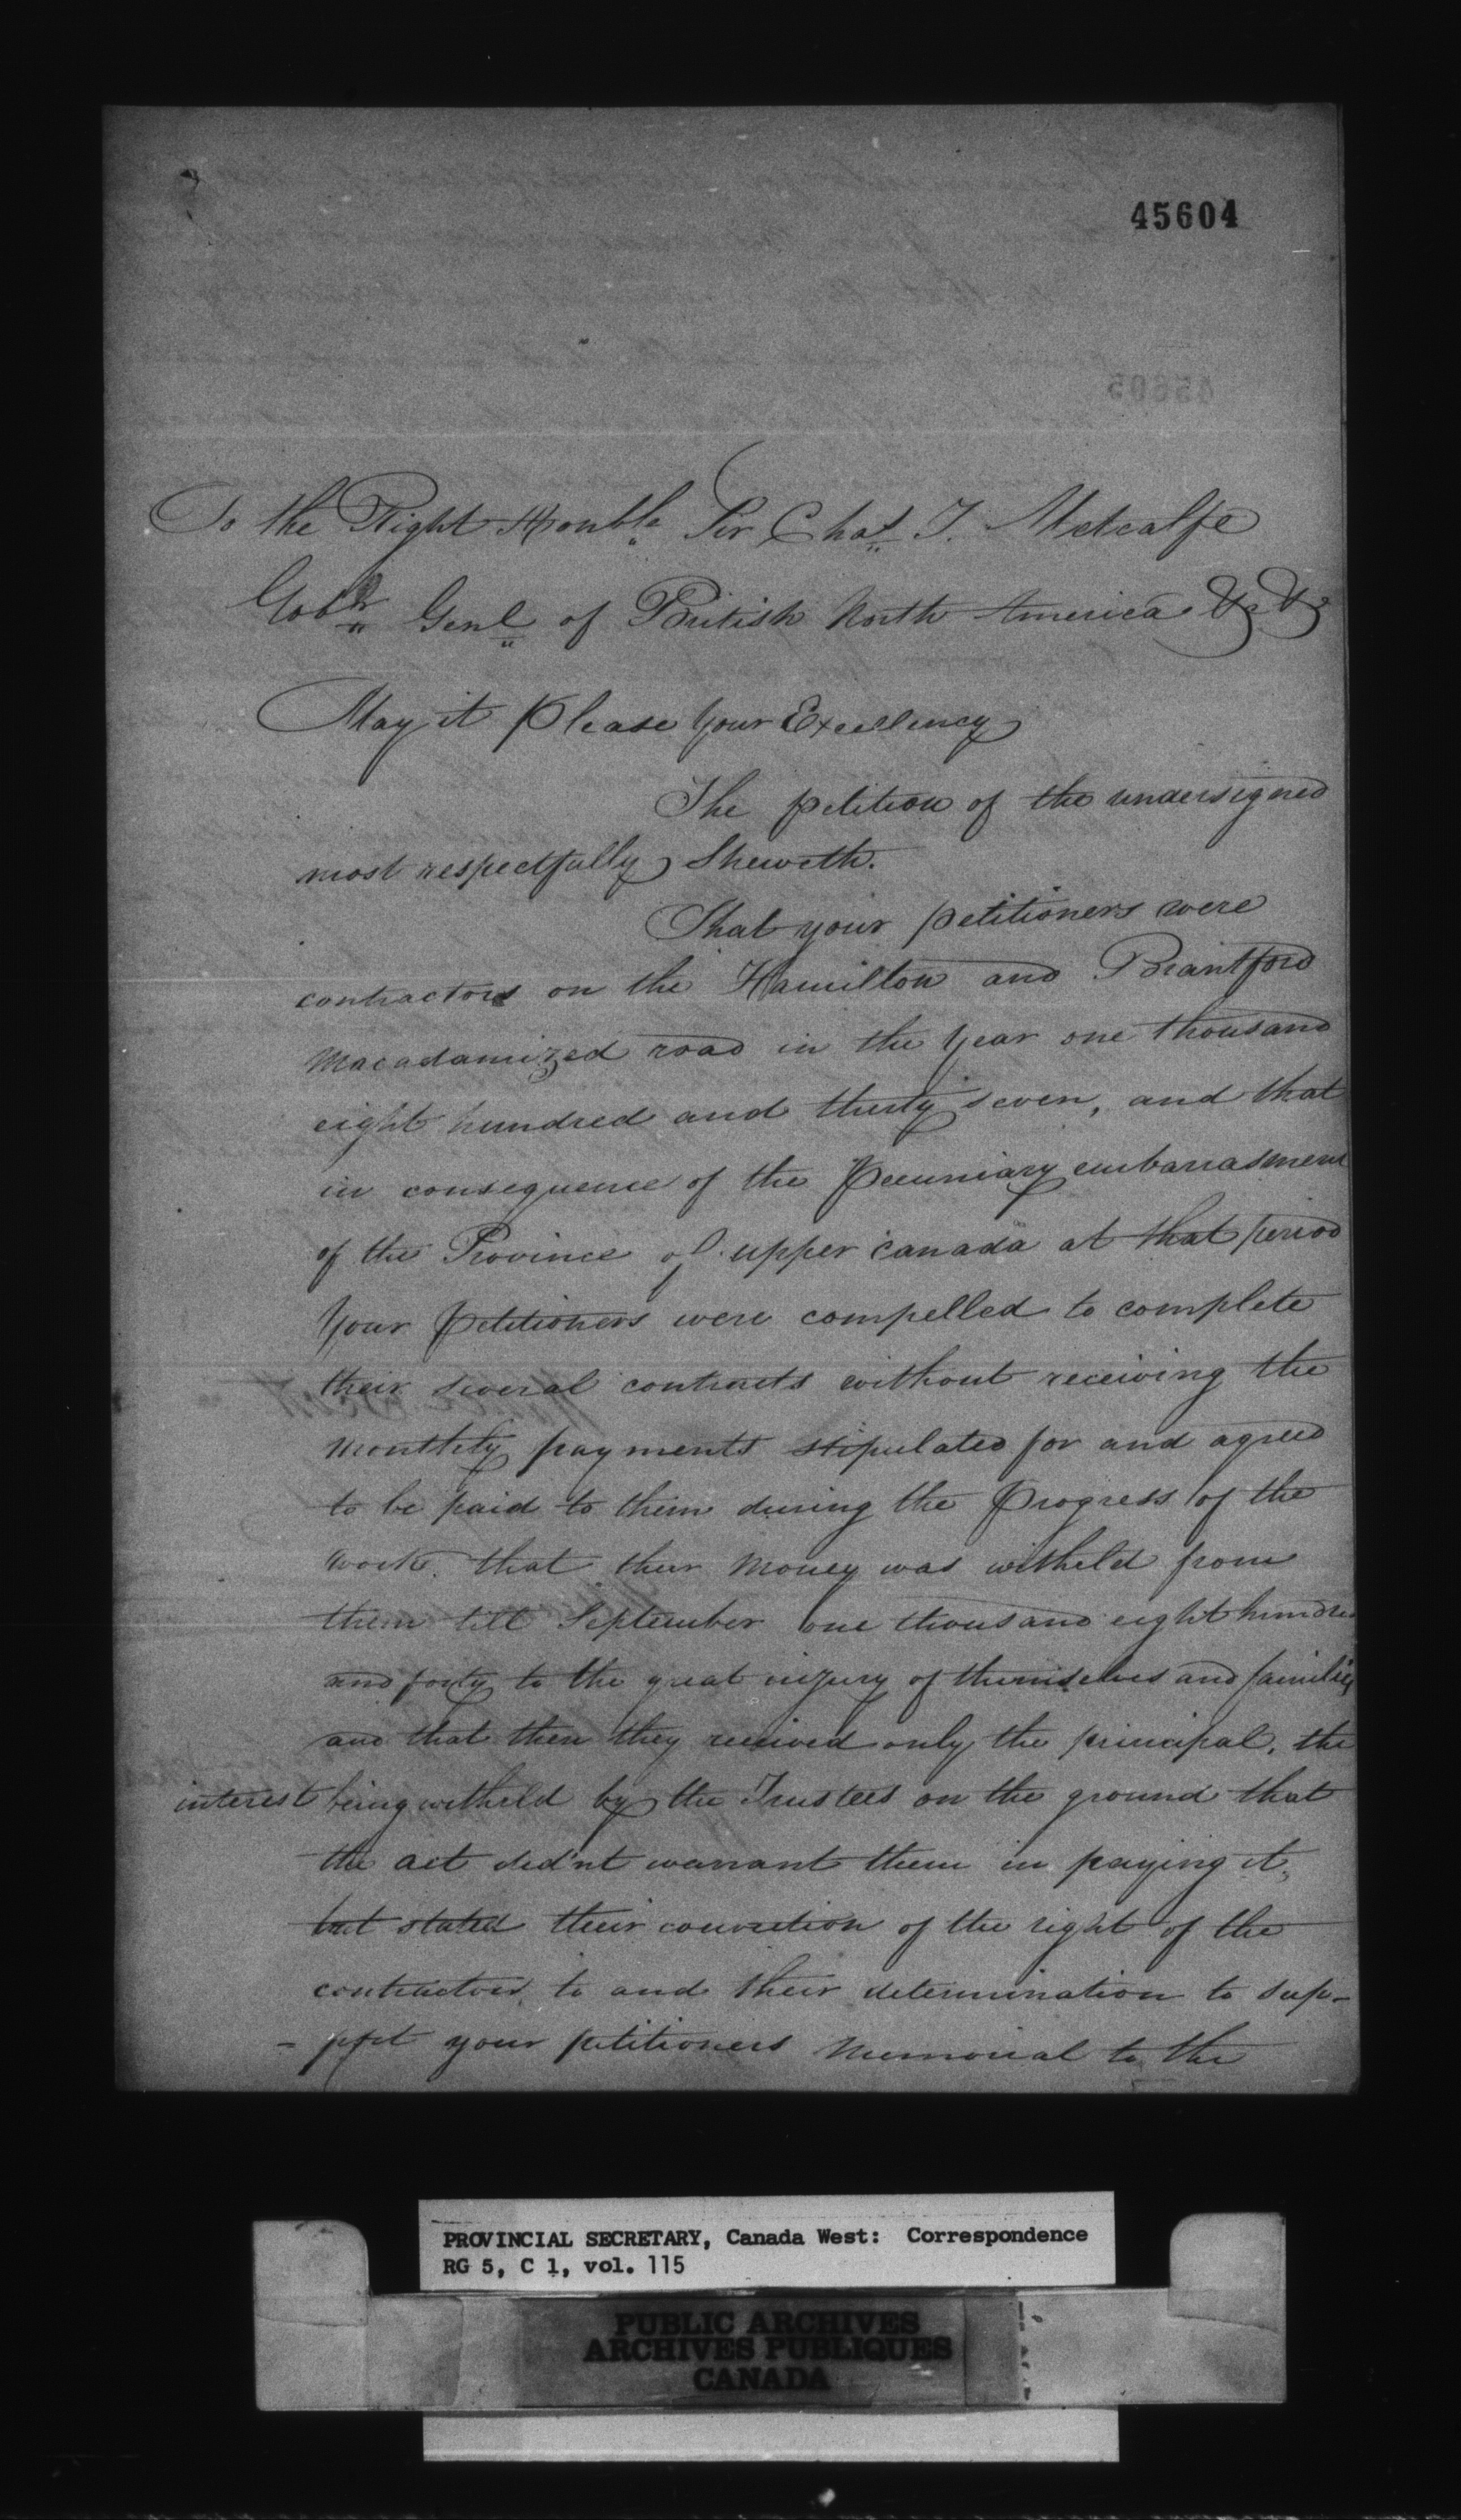 45604
To the Right Honble Sir Chas T. Metcalfe
Govr Genl of British North America &c &c
May it Please Your Excellency
The petition of the undersigned
most respectfully Sheweth.
That your petitioners were
contractors on the Hamilton and Brantford
Macadamized road in the Year one thousand
eight hundred and thirty seven, and that
in consequence of the Pecuniary embarrasment
of the Province of upper canada at that period
Your Petitioners were compelled to complete
their several contracts without receiving the
Monthly payments stipulated for and agreed
to be paid to them during the Progress of the
work. that their Money was witheld from
them till September one thousand eight hundred
and forty to the great injury of themselves and families
and that then they received only the principal, the
interest being witheld by the Trustees on the ground that
the act did'nt warrant them in paying it,
but stated their conviction of the right of the
contractors to and their determination to sup-
-port your petitioners Memorial to the
PROVINCIAL SECRETARY, Canada West: Correspondence
RG 5, C 1, vol. 115
PUBLIC ARCHIVES
ARCHIVES PUBLIQUES
CANADA